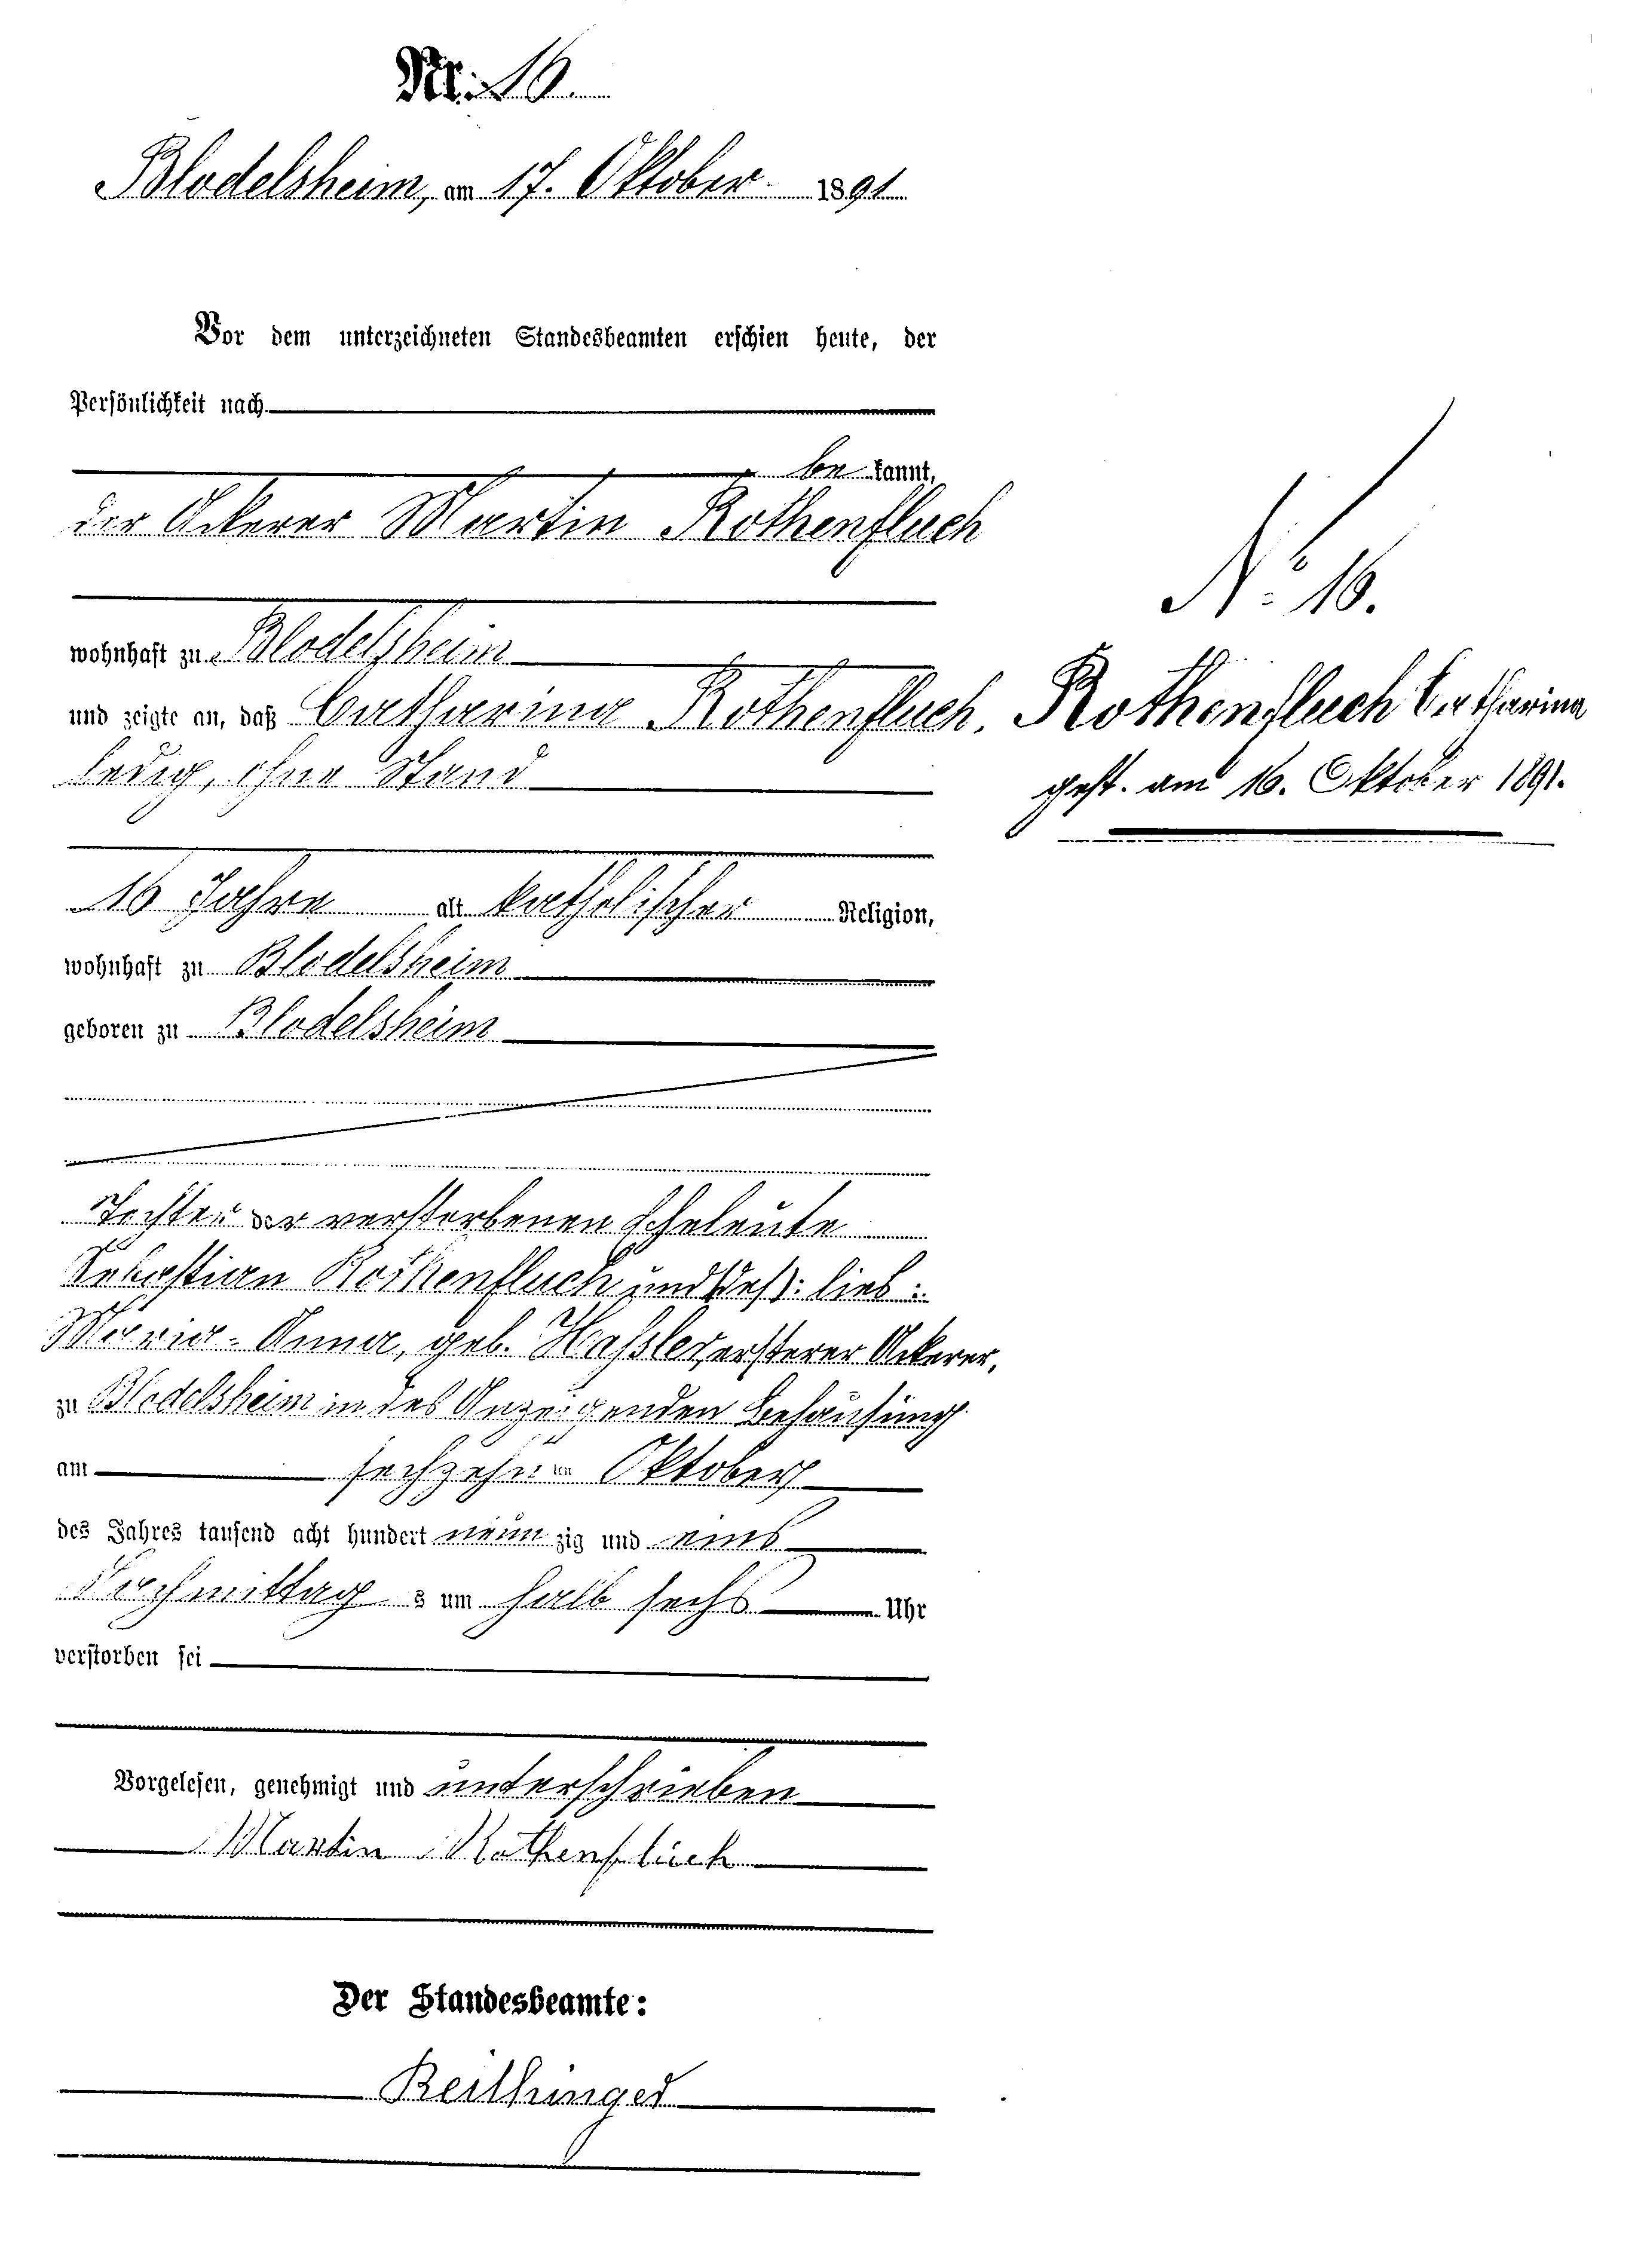 Nr. 16.
Blodelsheim, am 17. Oktober 1891
Vor dem unterzeichneten Standesbeamten erschien heute, der
Persönlichkeit nach
be kannt,
der Ackerer Martin Rothenfluch
wohnhaft zu Blodelsheim
und zeigte an, daß Catharina Rothenfluch,
ledig, ohne Stand
16 Jahre alt katholischer Religion,
wohnhaft zu Blodelsheim
geboren zu Blodelsheim
Tochter der verstorbenen Eheleute
Sebastian Rothenfluch und lieb:
Maria-Anna, geb. Haßler, ersterer Ackerer,
zu Blodelsheim in des Anzeigenden Behausung
am sechzehnten Oktober
des Jahres tausend acht hundert neun zig und eins
Nachmittag s um halb sechs Uhr
verstorben sei
Vorgelesen, genehmigt und unterschrieben
Martin Rothenfluch
Der Standesbeamte:
Reithinger
No 16.
Rothenfluch Catharina
gest. am 16. Oktober 1891.